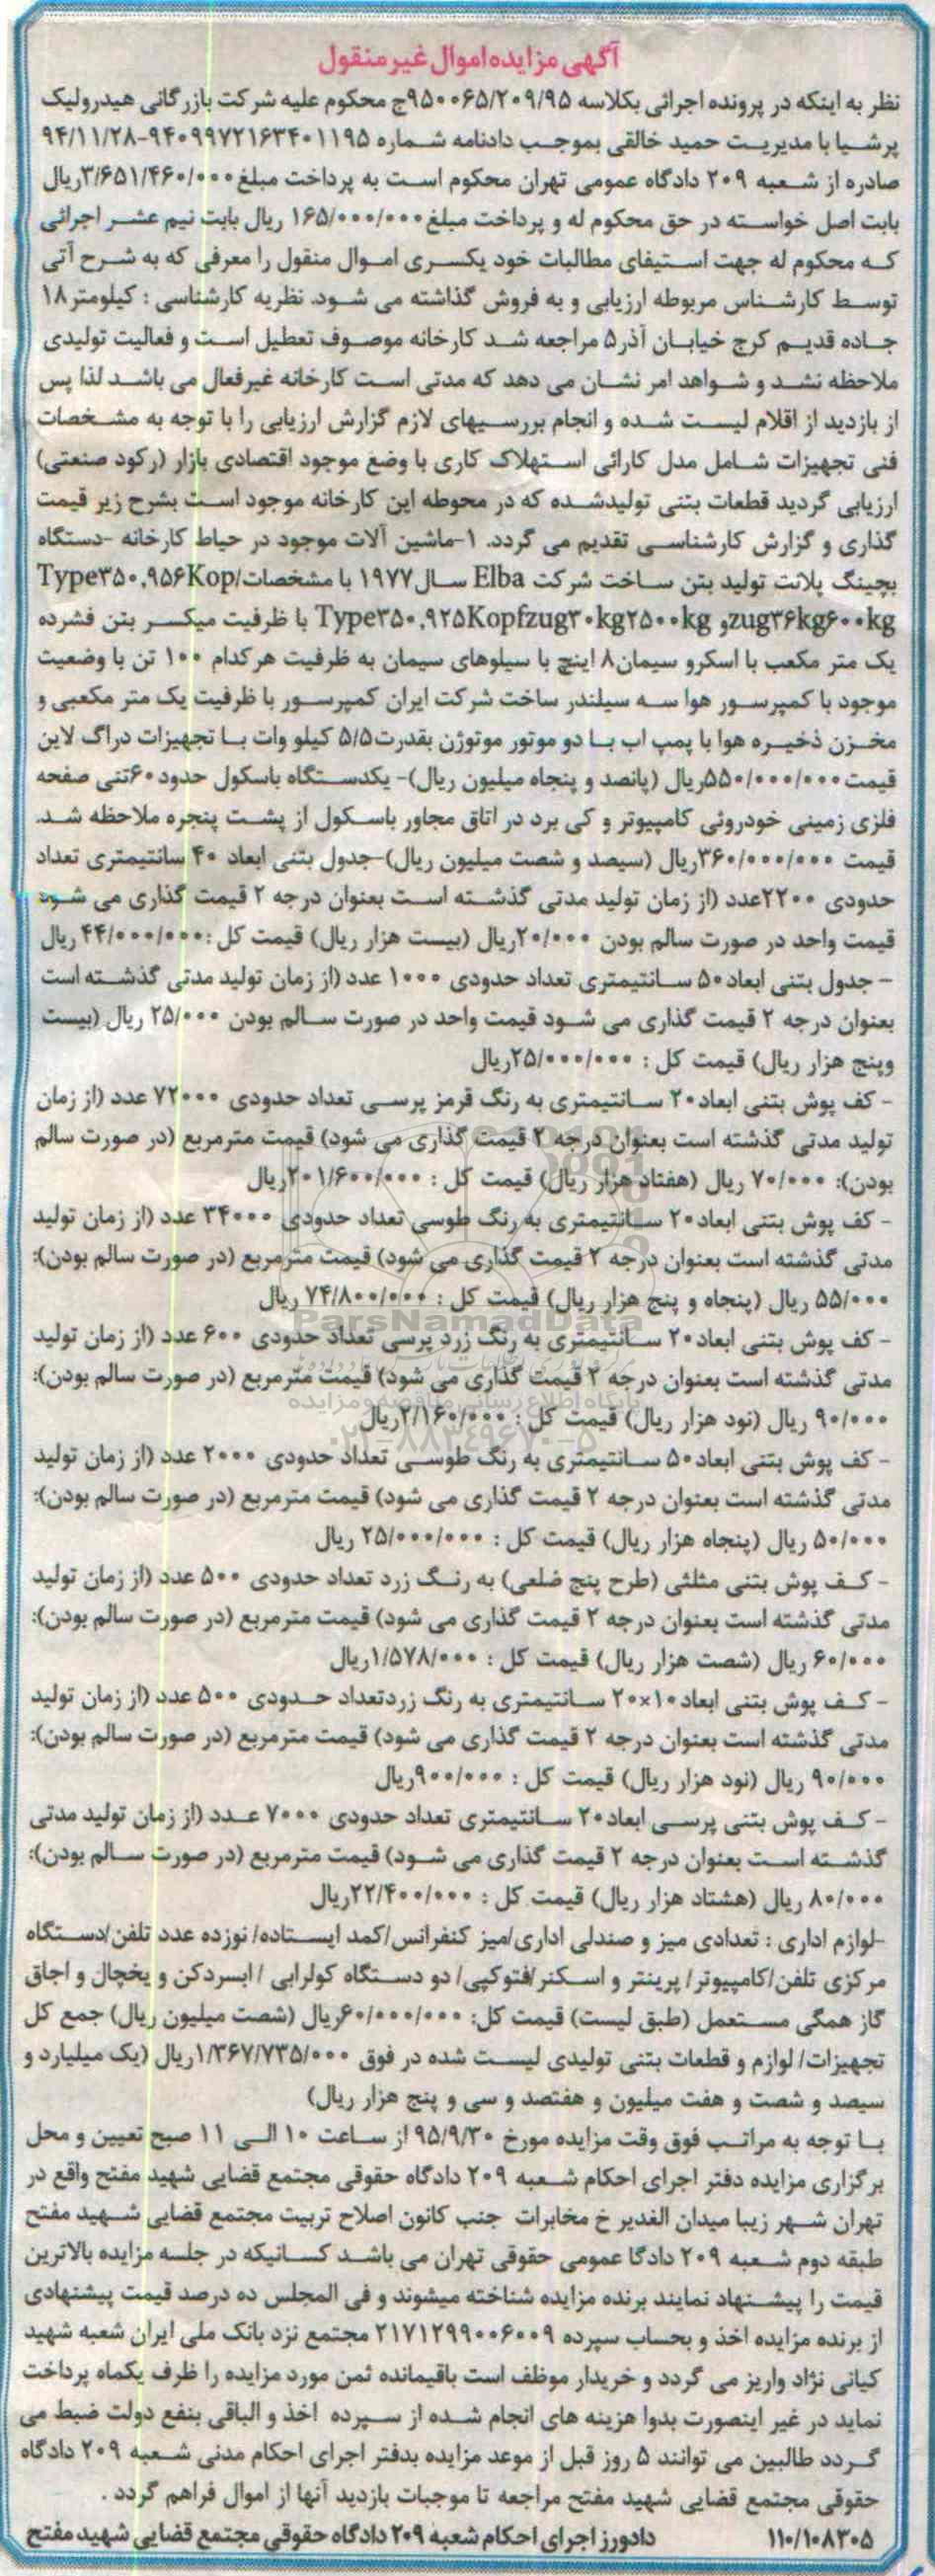 آگهی مزایده اموال غیر منقول
نظر به اینکه در پرونده اجرائی بکلاسه ۹۵۰۰۶۵/۲۰۹/۹۵ج محکوم علیه شرکت بازرگانی هیدرولیک
پرشیا با مدیریت حمید خالقی بموجب دادنامه شماره ۹۴۰۹۹۷۲۱۶۳۴۰۱۱۹۵-۹۴/۱۱/۲۸
صادره از شعبه ۲۰۹ دادگاه عمومی تهران محکوم است به پرداخت مبلغ ۳/۶۵۱/۴۶۰/۰۰۰ریال
بابت اصل خواسته در حق محکوم له و پرداخت مبلغ ۱۶۵/۰۰۰/۰۰۰ ریال بابت نیم عشر اجرائی
که محکوم له جهت استیفای مطالبات خود یکسری اموال منقول را معرفی که به شرح آتی
توسط کارشناس مربوطه ارزیابی و به فروش گذاشته می شود. نظریه کارشناسی : کیلومتر ۱۸
جاده قدیم کرج خیابان آذر۵ مراجعه شد کارخانه موصوف تعطیل است و فعالیت تولیدی
ملاحظه نشد و شواهد امر نشان می دهد که مدتی است کارخانه غیرفعال می باشد لذا پس
از بازدید از اقلام لیست شده و انجام بررسیهای لازم گزارش ارزیابی را با توجه به مشخصات
فنی تجهیزات شامل مدل کارائی استهلاک کاری با وضع موجود اقتصادی بازار (رکود صنعتی)
ارزیابی گردید قطعات بتنی تولیدشده که در محوطه این کارخانه موجود است بشرح زیر قیمت
گذاری و گزارش کارشناسی تقدیم می گردد. ۱-ماشین آلات موجود در حیاط کارخانه -دستگاه
بچینگ پلانت تولید بتن ساخت شرکت Elba سال ۱۹۷۷ با مشخصات/Type۳۵۰,۹۵۶Kop
zug۳۶kg۶۰۰kgو Type۳۵۰,۹۲۵Kopfzug۳۰kg۲۵۰۰kg با ظرفیت میکسر بتن فشرده
یک متر مکعب با اسکرو سیمان۸ اینچ با سیلوهای سیمان به ظرفیت هرکدام ۱۰۰ تن با وضعیت
موجود با کمپرسور هوا سه سیلندر ساخت شرکت ایران کمپرسور با ظرفیت یک متر مکعبی و
مخزن ذخیره هوا با پمپ اب با دو موتور موتوژن بقدرت۵/۵ کیلو وات با تجهیزات دراگ لاین
قیمت ۵۵۰/۰۰۰/۰۰۰ریال (پانصد و پنجاه میلیون ریال)- یکدستگاه باسکول حدود۶۰تنی صفحه
فلزی زمینی خودروئی کامپیوتر و کی برد در اتاق مجاور باسکول از پشت پنجره ملاحظه شد.
قیمت ۳۶۰/۰۰۰/۰۰۰ریال (سیصد و شصت میلیون ریال)-جدول بتنی ابعاد ۴۰ سانتیمتری تعداد
حدودی ۲۲۰۰عدد (از زمان تولید مدتی گذشته است بعنوان درجه ۲ قیمت گذاری می شود
قیمت واحد در صورت سالم بودن ۲۰/۰۰۰ریال (بیست هزار ریال) قیمت کل :۴۴/۰۰۰/۰۰۰ ریال
- جدول بتنی ابعاد۵۰ سانتیمتری تعداد حدودی ۱۰۰۰ عدد (از زمان تولید مدتی گذشته است
بعنوان درجه ۲ قیمت گذاری می شود قیمت واحد در صورت سالم بودن ۲۵/۰۰۰ ریال (بیست
وپنج هزار ریال) قیمت کل : ۲۵/۰۰۰/۰۰۰ریال
- کف پوش بتنی ابعاد۲۰ سانتیمتری به رنگ قرمز پرسی تعداد حدودی ۷۲۰۰۰ عدد (از زمان
تولید مدتی گذشته است بعنوان درجه ۲ قیمت گذاری می شود) قیمت مترمربع (در صورت سالم
بودن): ۷۰/۰۰۰ ریال (هفتاد هزار ریال) قیمت کل : ۲۰۱/۶۰۰/۰۰۰ریال
- کف پوش بتنی ابعاد۲۰ سانتیمتری به رنگ طوسی تعداد حدودی ۳۴۰۰۰ عدد (از زمان تولید
مدتی گذشته است بعنوان درجه ۲ قیمت گذاری می شود) قیمت مترمربع (در صورت سالم بودن):
۵۵/۰۰۰ ریال (پنجاه و پنج هزار ریال) قیمت کل : ۷۴/۸۰۰/۰۰۰ ریال
ParsNamadData
- کف پوش بتنی ابعاد۲۰ سانتیمتری به رنگ زرد پرسی تعداد حدودی ۶۰۰ عدد (از زمان تولید
مدتی گذشته است بعنوان درجه ۲ قیمت گذاری می شود) قیمت مترمربع (در صورت سالم بودن):
پایگاه اطلاع رسانی مناقصه و مزایده
۹۰/۰۰۰ ریال (نود هزار ریال) قیمت کل : ۲/۱۶۰/۰۰۰ریال
۰۲۱-۸۸۳۴۹۶۷۰-۵
- کف پوش بتنی ابعاد۵۰ سانتیمتری به رنگ طوسی تعداد حدودی ۲۰۰۰ عدد (از زمان تولید
مدتی گذشته است بعنوان درجه ۲ قیمت گذاری می شود) قیمت مترمربع (در صورت سالم بودن):
۵۰/۰۰۰ ریال (پنجاه هزار ریال) قیمت کل : ۲۵/۰۰۰/۰۰۰ ریال
- کف پوش بتنی مثلثی (طرح پنج ضلعی) به رنگ زرد تعداد حدودی ۵۰۰ عدد (از زمان تولید
مدتی گذشته است بعنوان درجه ۲ قیمت گذاری می شود) قیمت مترمربع (در صورت سالم بودن):
۶۰/۰۰۰ ریال (شصت هزار ریال) قیمت کل : ۱/۵۷۸/۰۰۰ریال
- کف پوش بتنی ابعاد۱۰×۲۰ سانتیمتری به رنگ زردتعداد حدودی ۵۰۰ عدد (از زمان تولید
مدتی گذشته است بعنوان درجه ۲ قیمت گذاری می شود) قیمت مترمربع (در صورت سالم بودن):
۹۰/۰۰۰ ریال (نود هزار ریال) قیمت کل : ۹۰۰/۰۰۰ریال
- کف پوش بتنی پرسی ابعاد۲۰ سانتیمتری تعداد حدودی ۷۰۰۰ عدد (از زمان تولید مدتی
گذشته است بعنوان درجه ۲ قیمت گذاری می شود) قیمت مترمربع (در صورت سالم بودن):
۸۰/۰۰۰ ریال (هشتاد هزار ریال) قیمت کل : ۲۲/۴۰۰/۰۰۰ریال
-لوازم اداری : تعدادی میز و صندلی اداری/میز کنفرانس/کمد ایستاده/ نوزده عدد تلفن/دستگاه
مرکزی تلفن/کامپیوتر/ پرینتر و اسکنر/فتوکپی/ دو دستگاه کولرابی / ابسردکن و یخچال و اجاق
گاز همگی مستعمل (طبق لیست) قیمت کل: ۶۰/۰۰۰/۰۰۰ریال (شصت میلیون ریال) جمع کل
تجهیزات/ لوازم و قطعات بتنی تولیدی لیست شده در فوق ۱/۳۶۷/۷۳۵/۰۰۰ریال (یک میلیارد و
سیصد و شصت و هفت میلیون و هفتصد و سی و پنج هزار ریال)
با توجه به مراتب فوق وقت مزایده مورخ ۹۵/۹/۳۰ از ساعت ۱۰ الی ۱۱ صبح تعیین و محل
برگزاری مزایده دفتر اجرای احکام شعبه ۲۰۹ دادگاه حقوقی مجتمع قضایی شهید مفتح واقع در
تهران شهر زیبا میدان الغدیر خ مخابرات جنب کانون اصلاح تربیت مجتمع قضایی شهید مفتح
طبقه دوم شعبه ۲۰۹ دادگا عمومی حقوقی تهران می باشد کسانیکه در جلسه مزایده بالاترین
قیمت را پیشنهاد نمایند برنده مزایده شناخته میشوند و فی المجلس ده درصد قیمت پیشنهادی
از برنده مزایده اخذ و بحساب سپرده ۲۱۷۱۲۹۹۰۰۶۰۰۹ مجتمع نزد بانک ملی ایران شعبه شهید
کیانی نژاد واریز می گردد و خریدار موظف است باقیمانده ثمن مورد مزایده را ظرف یکماه پرداخت
نماید در غیر اینصورت بدوا هزینه های انجام شده از سپرده اخذ و الباقی بنفع دولت ضبط می
گردد طالبین می توانند ۵ روز قبل از موعد مزایده بدفتر اجرای احکام مدنی شعبه ۲۰۹ دادگاه
حقوقی مجتمع قضایی شهید مفتح مراجعه تا موجبات بازدید آنها از اموال فراهم گردد .
۱۱۰/۱۰۸۳۰۵ دادورز اجرای احکام شعبه ۲۰۹ دادگاه حقوقی مجتمع قضایی شهید مفتح